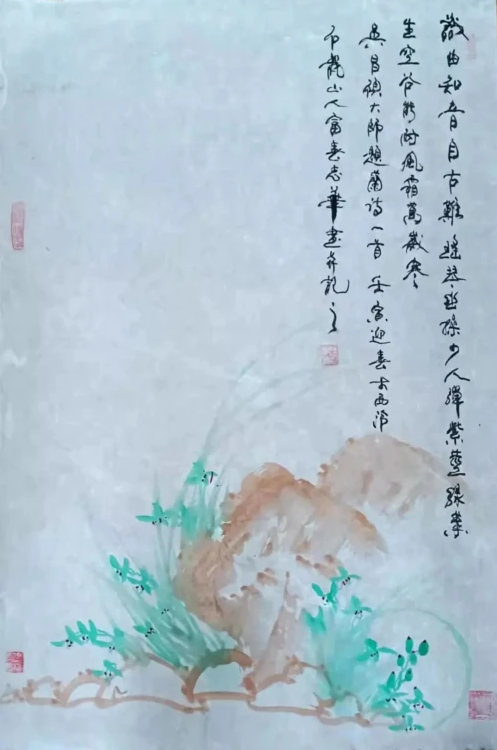 識曲知音自古難瑤琴幽操少人彈紫莖綠葉
生空谷能耐風霜萬歲寒
吳昌碩大師題蘭詩一首壬寅迎春于西泠
石龍山人富春忠華畫并記之